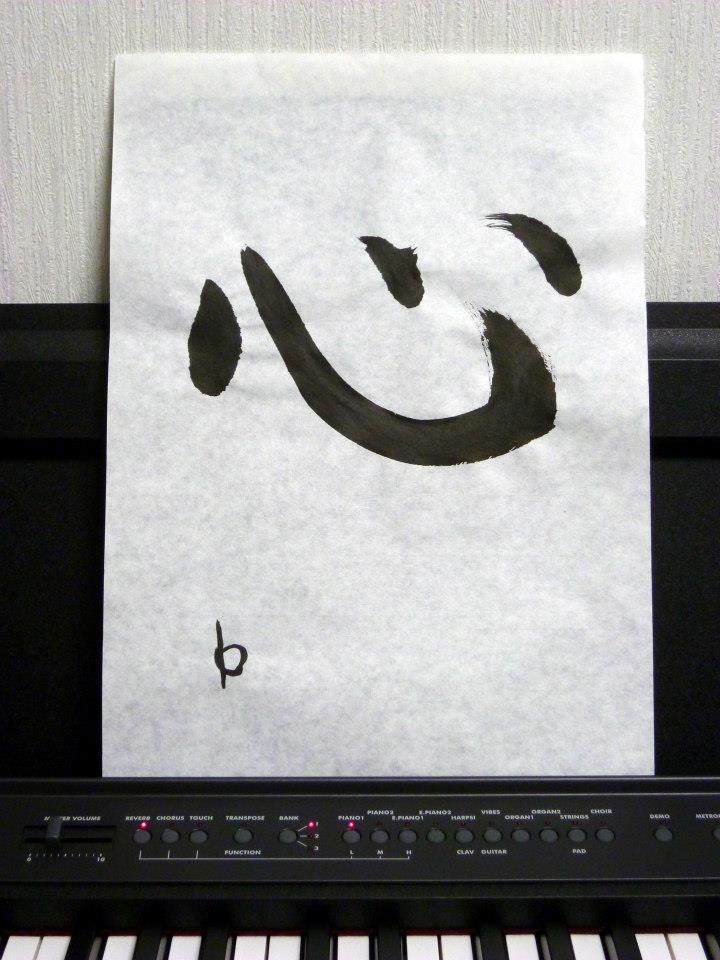 心
b
MASTER VOLUME
0 10
REVERB CHORUS TOUCH TRANSPOSE BANK 1 PIANO1 PIANO2 E.PIANO1 E.PIANO2 HARPSI VIBES ORGAN1 ORGAN2 STRINGS CHOIR DEMO METRO
2
3
FUNCTION L M H CLAV GUITAR PAD